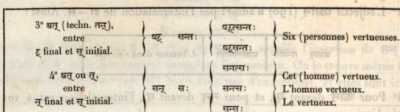 3° (techn. षट्त्सन्तः
entre षट् सन्तः Six (personnes) vertueuses.
ट् final et स् initial. षट्सन्तः
4° ou त्, सन्त्सः Cet (homme) vertueux.
entre सन् सः L'homme vertueux.
न् final et स् initial. सन्सः Le vertueux.